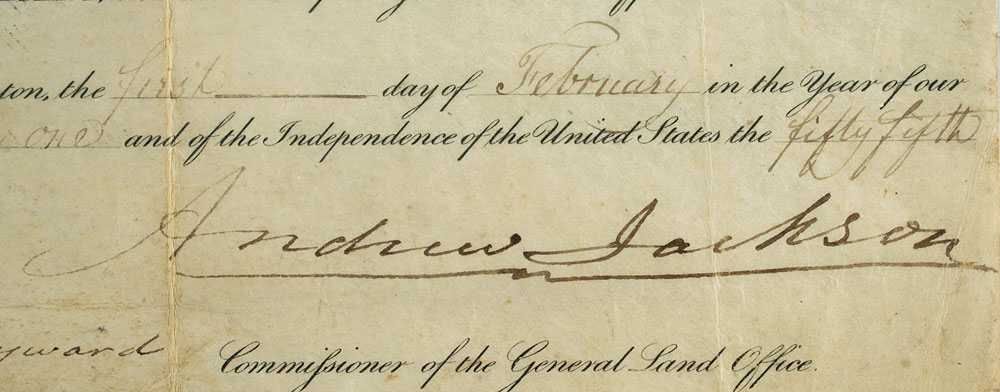 ton, the first day of February in the Year of our
one and of the Independence of the United States the fifty fifth
Andrew Jackson
yward
Commissioner of the General Land Office.